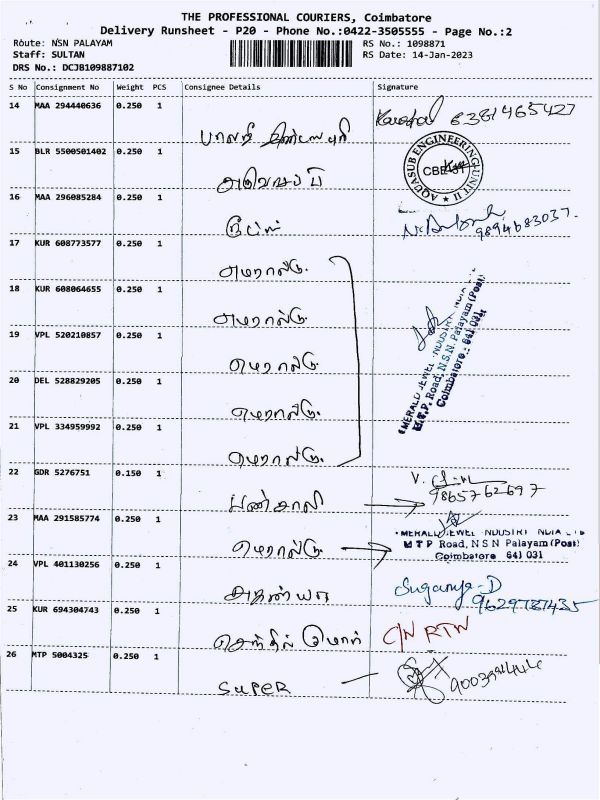 THE PROFESSIONAL COURIERS, Coimbatore
Delivery Runsheet - P20 - Phone No.:0422-3505555 - Page No.:2
Route: NSN PALAYAM RS No.: 1098871
Staff: SULTAN RS Date: 14-Jan-2023
DRS No.: DCJB109887102
S No Consignment No Weight PCS Consignee Details Signature
14 MAA 294440636 0.250 1 6381465427
பாலாஜி
15 BLR 5500501402 0.250 1 AQUASUB ENGINEERING UNIT II
16 MAA 296085284 0.250 1 9894683037.
17 KUR 608773577 0.250 1
எமரால்டு.
18 KUR 608064655 0.250 1
எமரால்டு.
19 VPL 520210857 0.250 1
எமரால்டு.
20 DEL 528829205 0.250 1
எமரால்டு.
21 VPL 334959992 0.250 1
எமரால்டு.
EMERALD JEWEL INDUSTRY INDIA
M.T.P. Road, N.S.N. Palayam (Post)
Coimbatore : 641 031
22 GDR 5276751 0.150 1
பன்சாலி 9865762697
23 MAA 291585774 0.250 1 EMERALD JEWEL INDUSTRY INDIA LTD
எமரால்டு. M T P Road, N S N Palayam (Post)
Coimbatore 641 031
24 VPL 401130256 0.250 1
Suganya-D
9629787435
25 KUR 694304743 0.250 1
செந்தில் C/N RTN
26 MTP 5004325 0.250 1
SUPER